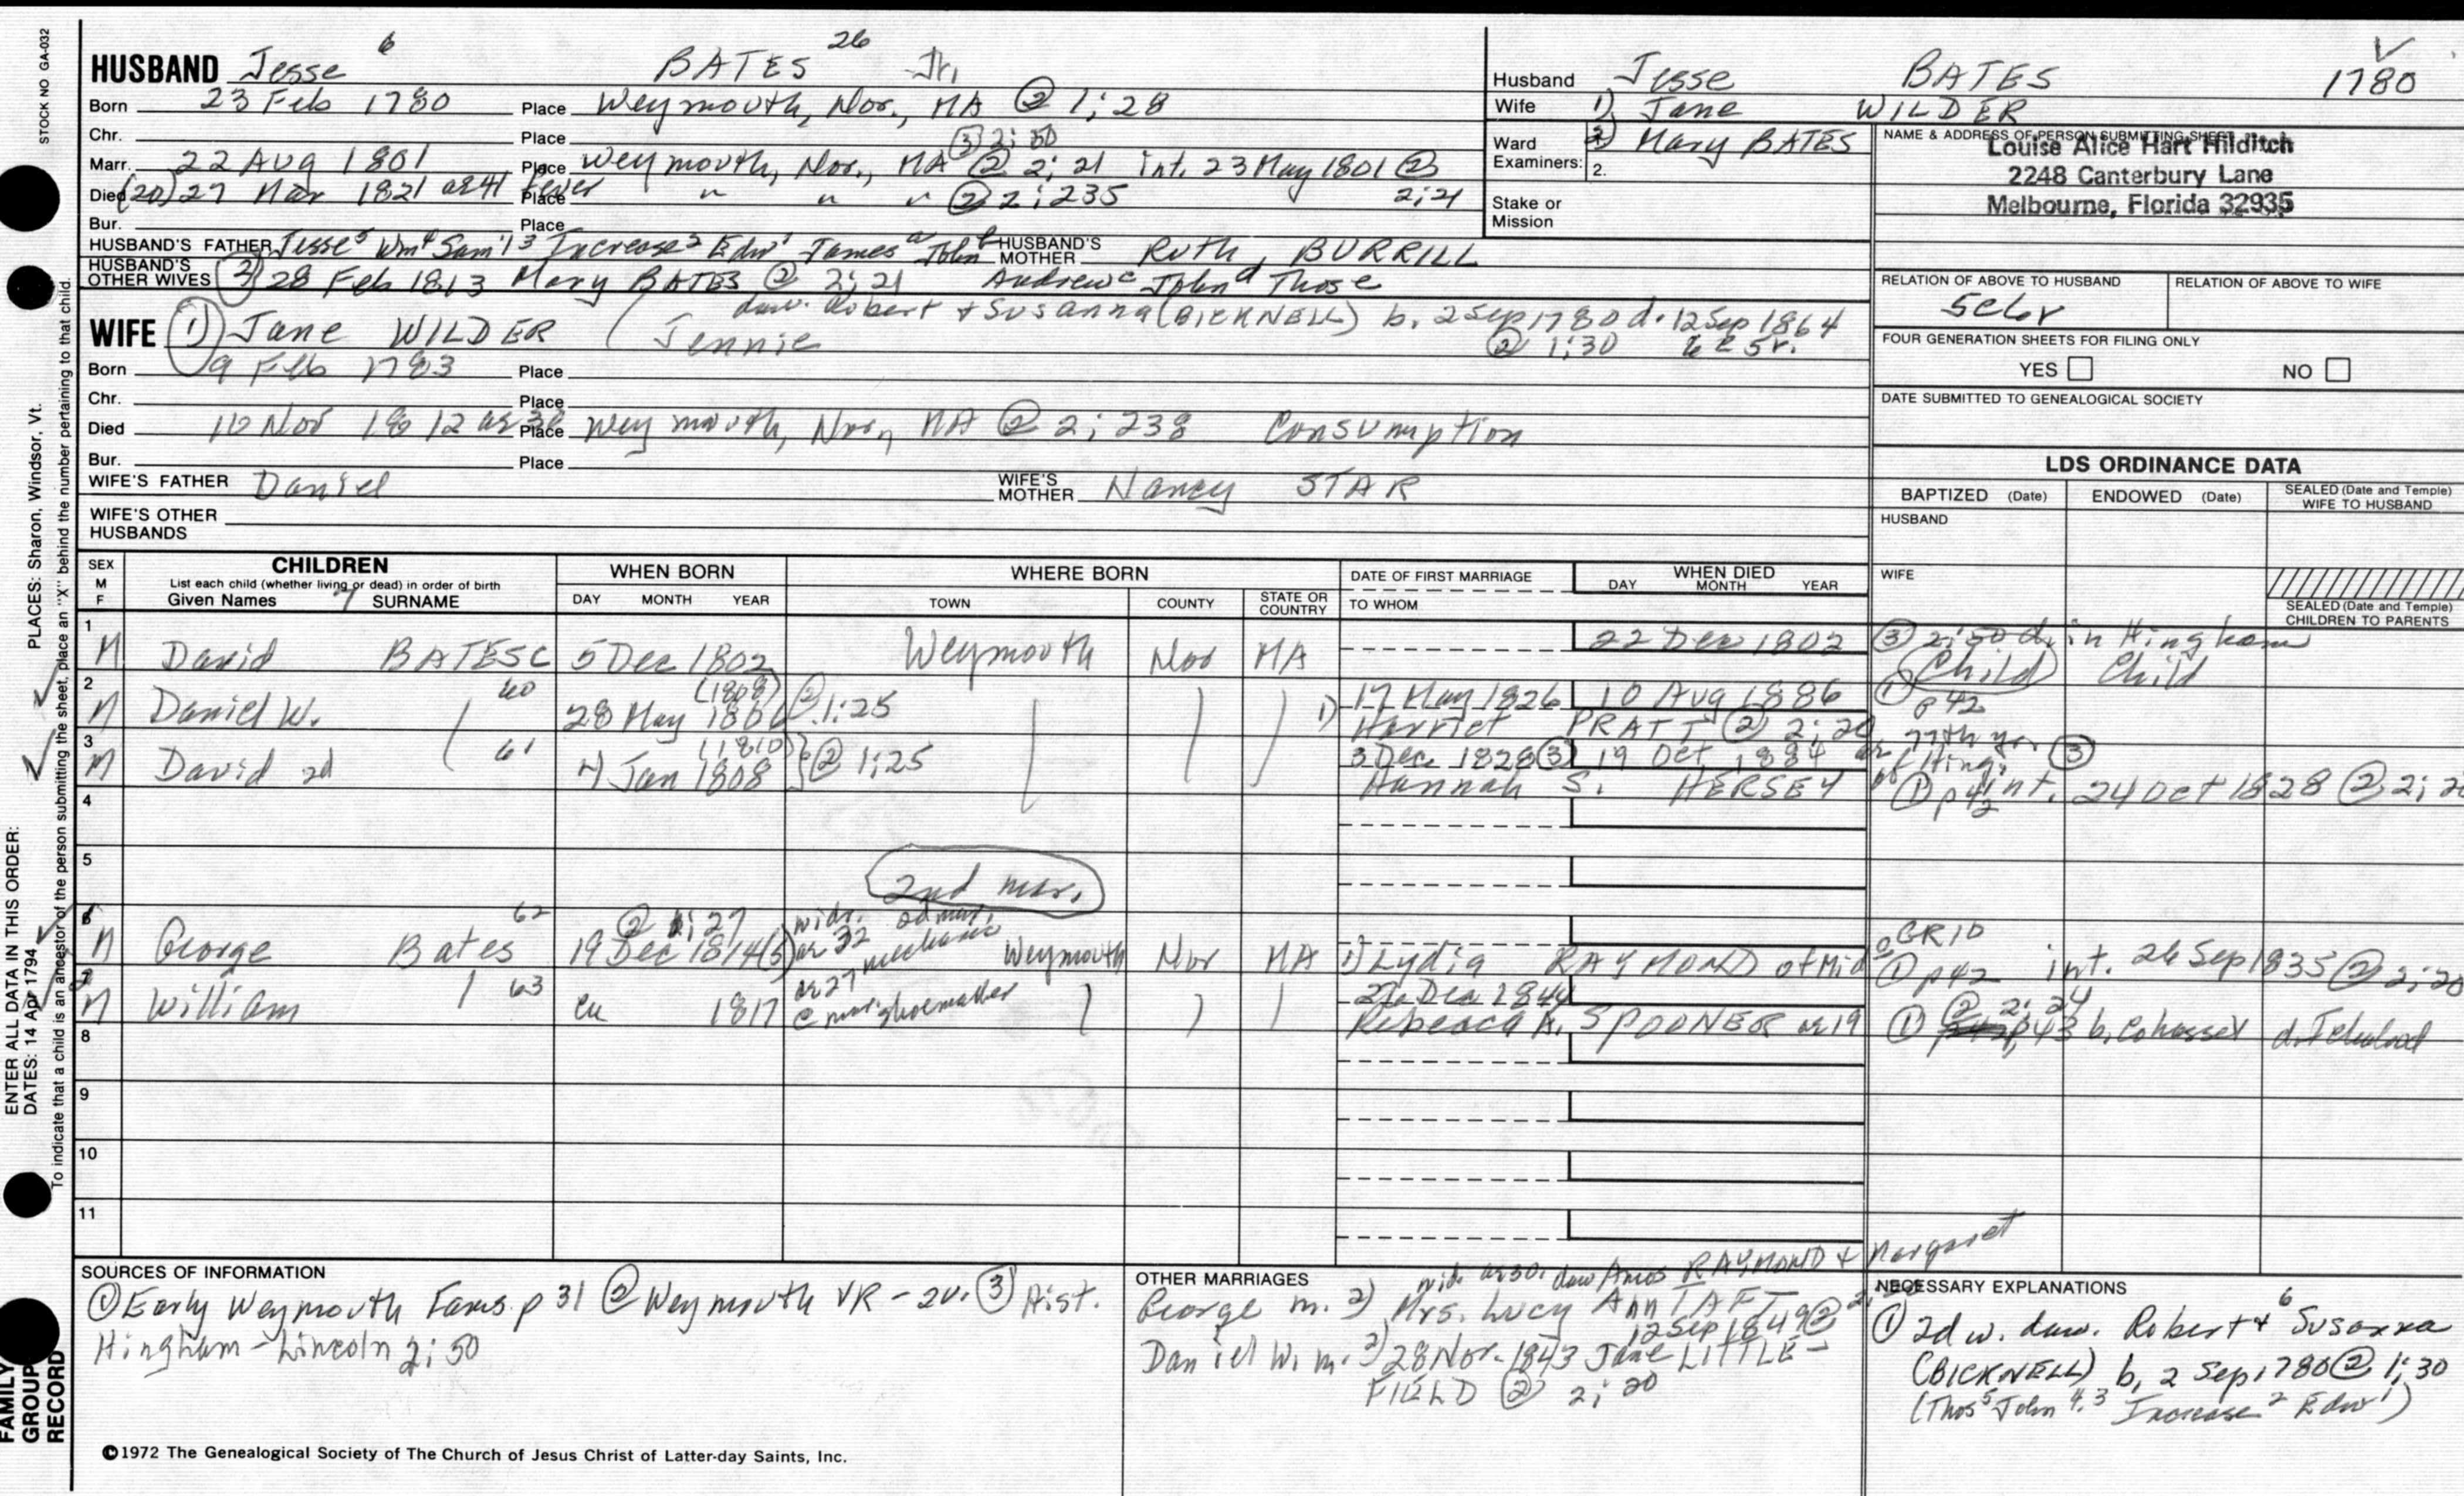 STOCK NO GA-032
PLACES: Sharon, Windsor, Vt.
ENTER ALL DATA IN THIS ORDER:
DATES: 14 Apr 1794
To indicate that a child is an ancestor of the person submitting the sheet, place an "X" behind the number pertaining to that child.
FAMILY GROUP RECORD
HUSBAND Jesse 6 BATES 26 Jr.
Born 23 Feb 1780 Place Weymouth, Nor., MA ② 1:28
Chr. Place ③ 2:50
Marr. 22 Aug 1801 Place Weymouth, Nor., MA ② 2:21 int. 23 May 1801 ② 2:21
Died (20) 27 Mar 1821 ae 41 fever Place " " " ② 2:235
Bur. Place
HUSBAND'S FATHER Jesse5 Wm4 Sam'l3 Increase2 Edw1 James a John b HUSBAND'S MOTHER Ruth BURRILL
HUSBAND'S OTHER WIVES 2) 28 Feb 1813 Mary BATES @ 2:21 Andrew c John d Thos e
dau. Robert + Susanna (BICKNELL) b. 2 Sep 1780 d. 12 Sep 1864
WIFE 1) Jane WILDER ( Jennie ② 1:30
Born 9 Feb 1783 Place
Chr. Place
Died 10 Nov 1812 ae 30 Place Weymouth, Nor, MA ② 2:238 Consumption
Bur. Place
WIFE'S FATHER Daniel WIFE'S MOTHER Nancy STAR
WIFE'S OTHER HUSBANDS
Husband Jesse BATES 1780
Wife 1) Jane WILDER
2) Mary BATES
Ward
Examiners: 2.
Stake or Mission
NAME & ADDRESS OF PERSON SUBMITTING SHEET
Louise Alice Hart Hilditch
2248 Canterbury Lane
Melbourne, Florida 32935
RELATION OF ABOVE TO HUSBAND RELATION OF ABOVE TO WIFE
5c6r
FOUR GENERATION SHEETS FOR FILING ONLY
YES NO
DATE SUBMITTED TO GENEALOGICAL SOCIETY
LDS ORDINANCE DATA
BAPTIZED (Date) ENDOWED (Date) SEALED (Date and Temple) WIFE TO HUSBAND
HUSBAND
WIFE
SEALED (Date and Temple) CHILDREN TO PARENTS
SEX M F CHILDREN WHEN BORN WHERE BORN DATE OF FIRST MARRIAGE WHEN DIED
List each child (whether living or dead) in order of birth
Given Names 7 SURNAME DAY MONTH YEAR TOWN COUNTY STATE OR COUNTRY TO WHOM DAY MONTH YEAR
1 M David BATES C 5 Dec 1802 Weymouth Nor MA 22 Dec 1802 ③ 2:50 d. in Hingham
Child Child
2 M Daniel W. 60 28 May 1806 (1808) ② 1:25 1) 17 May 1826 10 Aug 1886 ① p 42
Harriet PRATT ② 2:20
3 M David 2d 61 4 Jan 1808 (1810) ② 1:25 3 Dec 1828 ③ 19 Oct 1884 77th yr ③
Hannah S. HERSEY of Hing. ① p 42 int. 24 Oct 1828 ② 2:20
4
5
2nd mar.
6 M George Bates 62 19 Dec 1814(5) ② 1:27 widr. 2d mar. ae 32 Weymouth Nor MA 1) Lydia RAYMOND of Mid ① p 42 int. 26 Sep 1835 ② 2:20
GRID
7 M William 63 cu 1817 ae 27 mechanic @ mar. shoemaker 26 Dec 1844 ② 2:24
Rebecca A. SPOONER ae 19 ① p 43 b. Cohasset
8
9
10
11
SOURCES OF INFORMATION
① Early Weymouth Fams. p 31 ② Weymouth VR - 2v. ③ Hist.
Hingham - Lincoln 2:50
OTHER MARRIAGES
wid. ae 30. dau Amos RAYMOND + Margaret
George m. 2) Mrs. Lucy Ann TAFT
12 Sep 1849 ②
Daniel W. m. 2) 28 Nov. 1843 Jane LITTLE-
FIELD ② 2:20
NECESSARY EXPLANATIONS
① 2d w. dau. Robert6 + Susanna
(BICKNELL) b. 2 Sep 1780 ② 1:30
(Thos5 John4,3 Increase2 Edw1)
©1972 The Genealogical Society of The Church of Jesus Christ of Latter-day Saints, Inc.